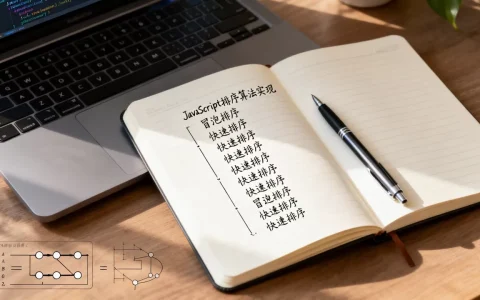 JavaScript排序算法实现
冒泡排序
快速排序
快速排序
快速排序
快速排序
快速排序
快速排序
冒泡排序
快速排序
快速排序